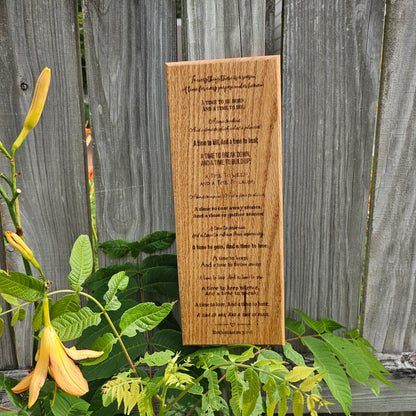 To everything there is a season,
A time for every purpose under heaven
A TIME TO BE BORN
AND A TIME TO DIE;
A time to kill, And a time to heal;
A TIME TO BREAK DOWN,
AND A TIME TO BUILD UP;
A TIME TO WEEP,
AND A TIME TO LAUGH;
A time to cast away stones,
And a time to gather stones;
A time to gain, And a time to lose;
A time to keep,
And a time to throw away;
A time to keep silence,
And a time to speak;
A time to love, And a time to hate;
A time of war, And a time of peace.